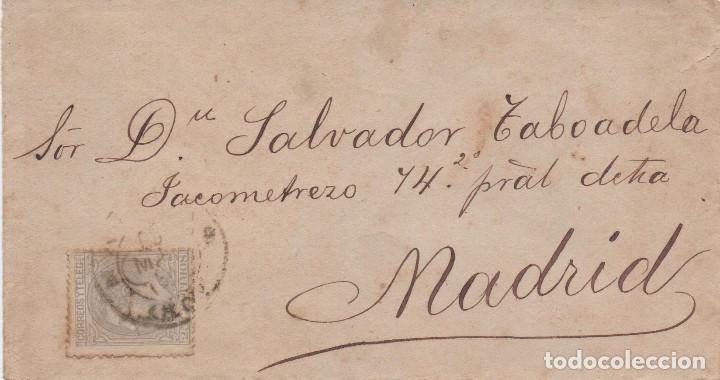 Sör D.n Salvador Taboadela
Jacometrezo 74.2º präl dcha
Madrid
CORREOS Y TELEG
todocoleccion